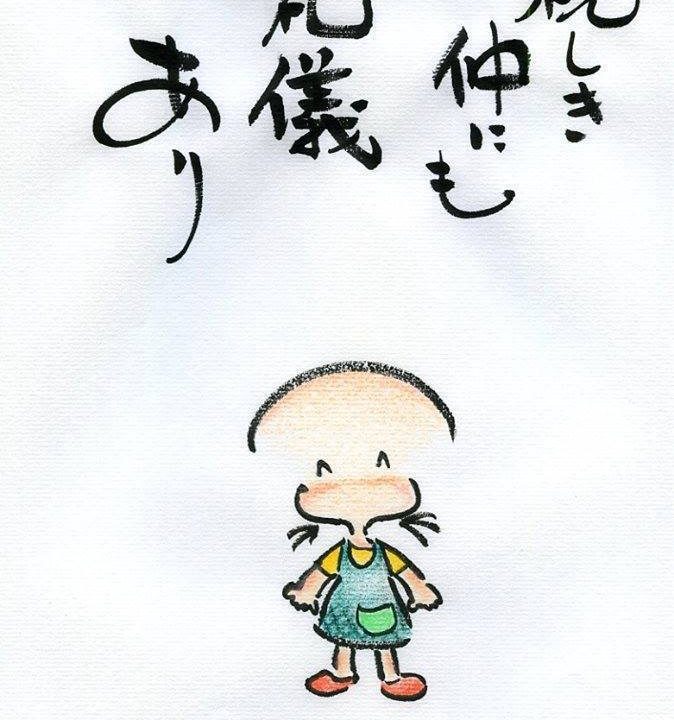 親しき
仲にも
礼儀
あり